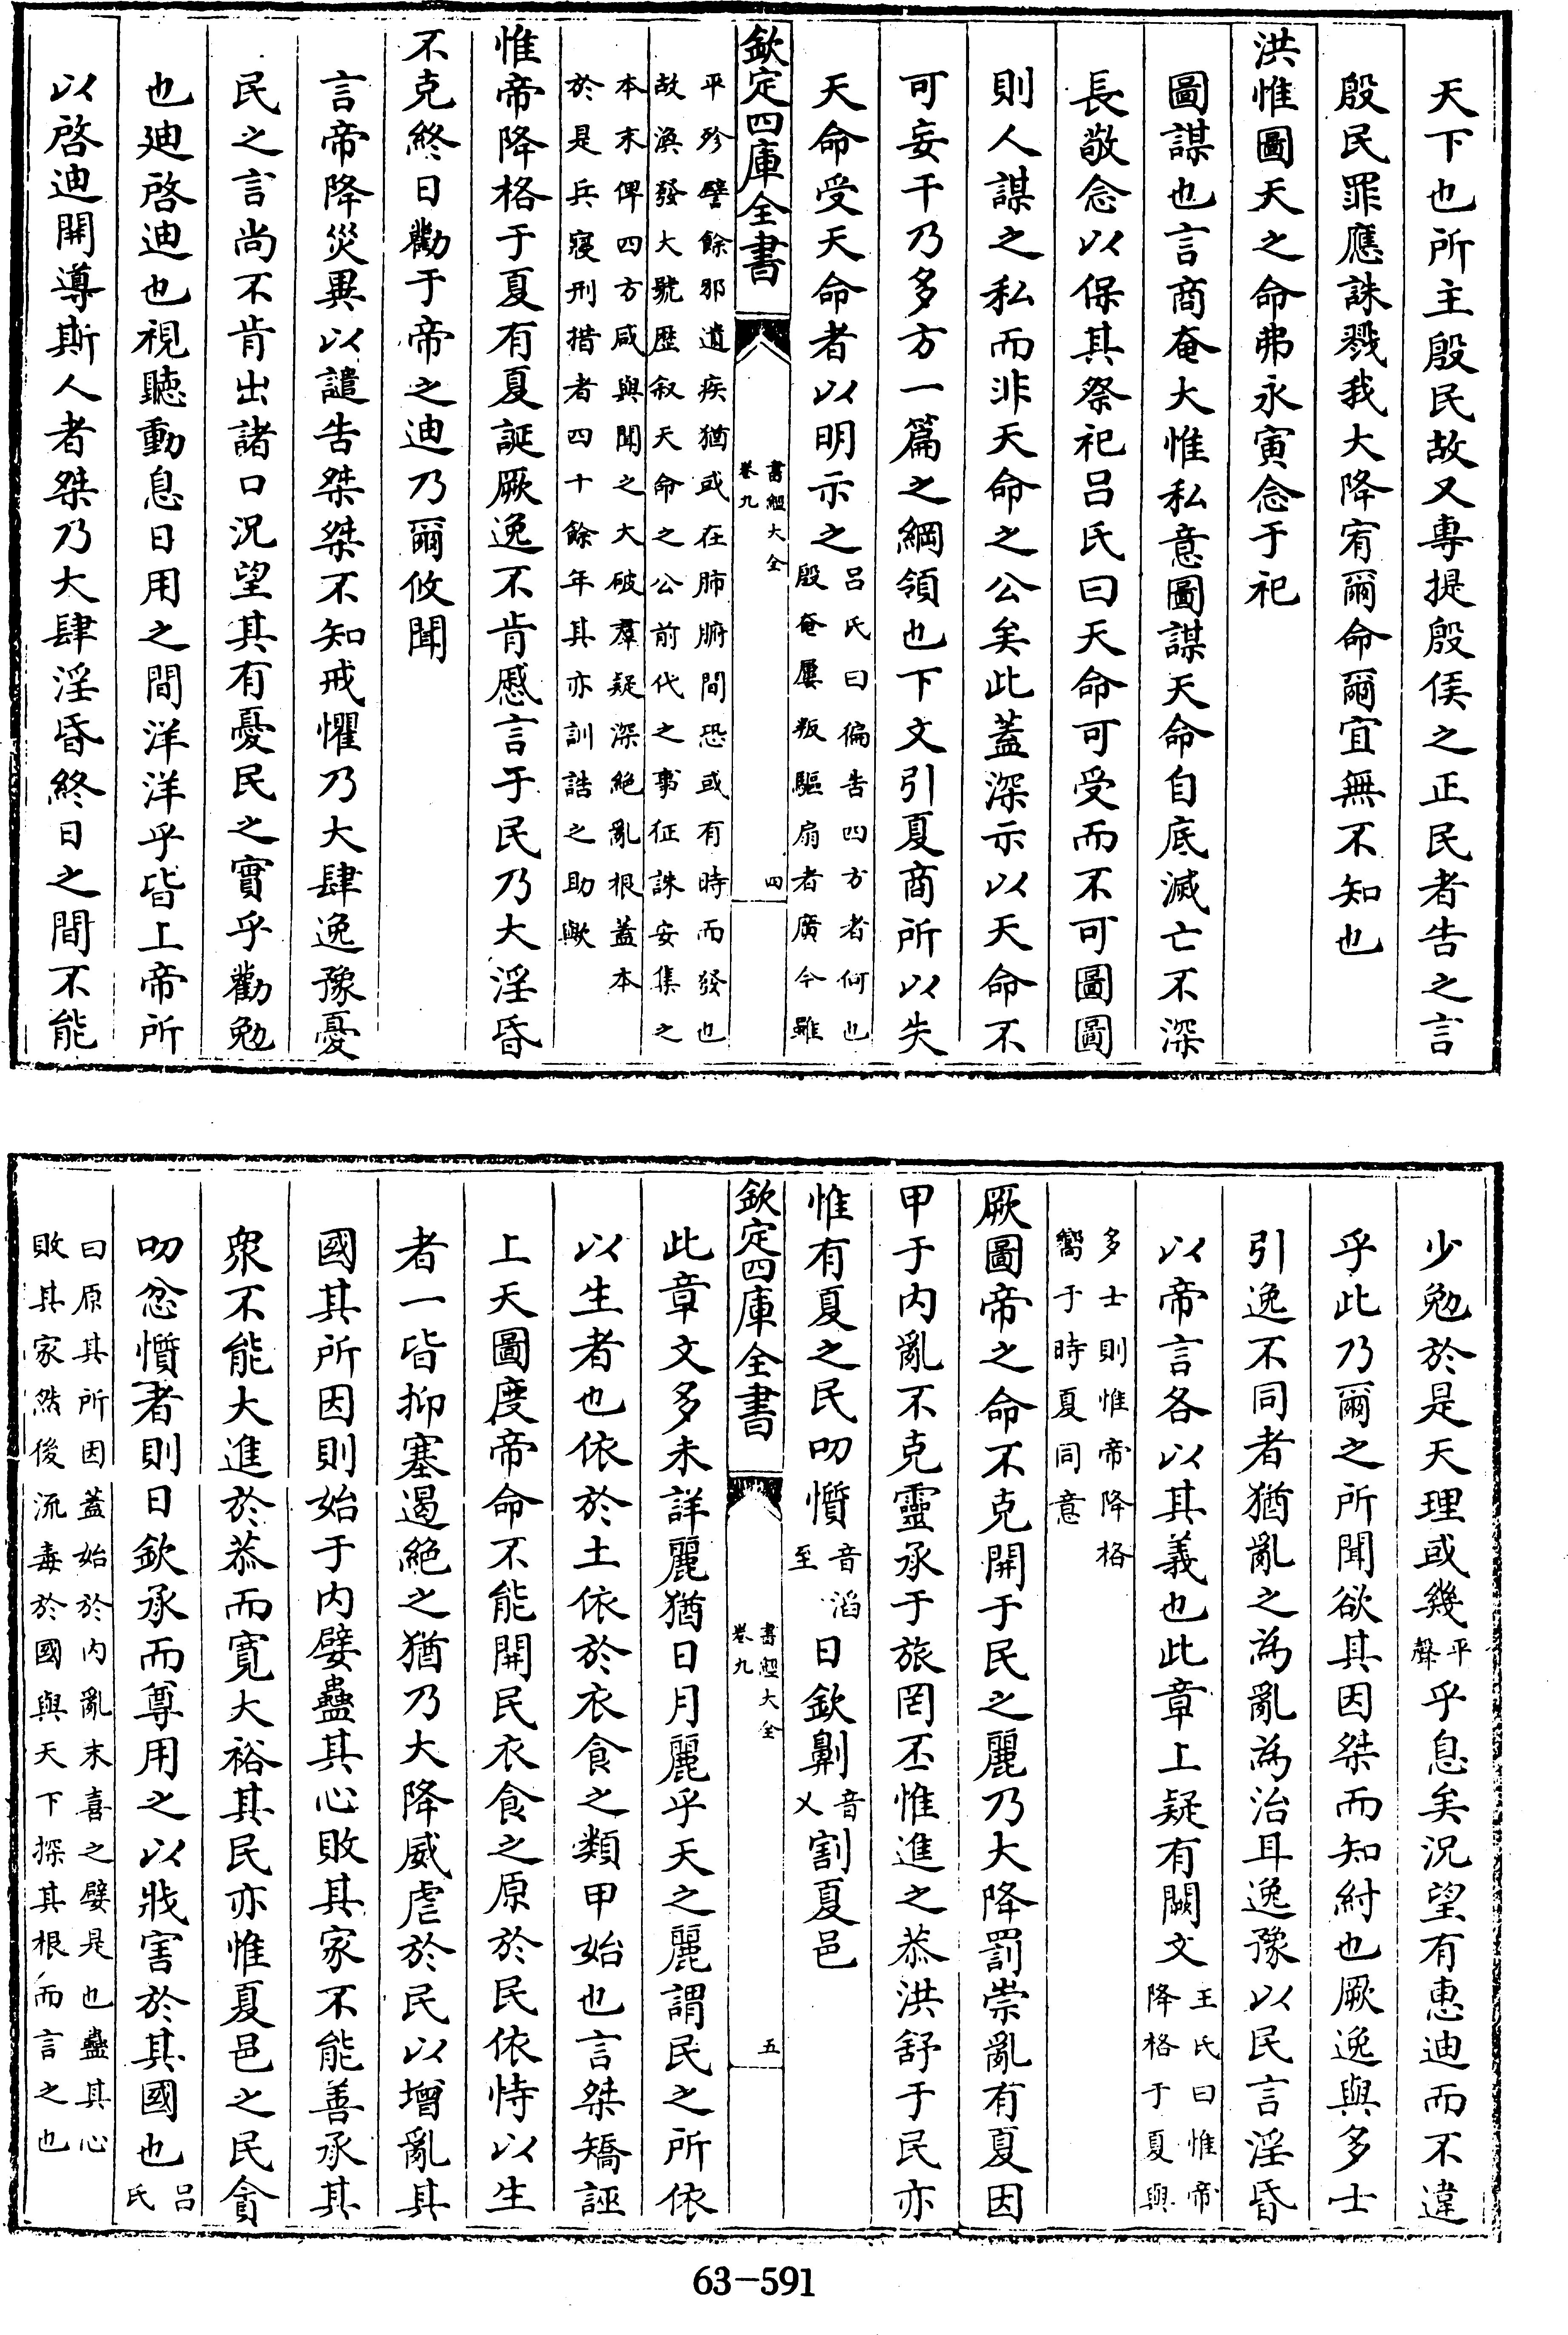 天下也所主殷民故又專提殷侯之正民者告之言
殷民罪應誅戮我大降宥爾命爾宜無不知也
洪惟圖天之命弗永寅念于祀
圖謀也言商奄大惟私意圖謀天命自底滅亡不深
長敬念以保其祭祀呂氏曰天命可受而不可圖圖
則人謀之私而非天命之公矣此蓋深示以天命不
可妄干乃多方一篇之綱領也下文引夏商所以失
天命受天命者以明示之呂氏曰徧告四方者何也
殷奄屢叛驅扇者廣今雖
欽定四庫全書
書經大全
卷九
四
平殄譬餘邪遺疾猶或在肺腑間恐或有時而發也
故渙發大號歴叙天命之公前代之事征誅安集之
本末俾四方咸與聞之大破羣疑深絶亂根蓋本
於是兵寢刑措者四十餘年其亦訓誥之助歟
惟帝降格于夏有夏誕厥逸不肯慼言于民乃大淫昏
不克終日勸于帝之迪乃爾攸聞
言帝降災異以譴告桀桀不知戒懼乃大肆逸豫憂
民之言尚不肯出諸口況望其有憂民之實乎勸勉
也廸啓迪也視聽動息日用之間洋洋乎皆上帝所
以啓迪開導斯人者桀乃大肆淫昏終日之間不能
少勉於是天理或幾平聲乎息矣況望有惠迪而不違
乎此乃爾之所聞欲其因桀而知紂也厥逸與多士
引逸不同者猶亂之為亂為治耳逸豫以民言淫昏
以帝言各以其義也此章上疑有闕文王氏曰惟帝
降格于夏與
多士則惟帝降格
嚮于時夏同意
厥圖帝之命不克開于民之麗乃大降罰崇亂有夏因
甲于内亂不克靈承于旅罔丕惟進之恭洪舒于民亦
惟有夏之民叨懫音滔
至日欽劓音
乂割夏邑
欽定四庫全書
書經大全
卷九
五
此章文多未詳麗猶日月麗乎天之麗謂民之所依
以生者也依於土依於衣食之類甲始也言桀矯誣
上天圖度帝命不能開民衣食之原於民依恃以生
者一皆抑塞遏絶之猶乃大降威虐於民以增亂其
國其所因則始于内嬖蠱其心敗其家不能善承其
衆不能大進於恭而寛大裕其民亦惟夏邑之民貪
叨忿懫者則日欽承而尊用之以戕害於其國也呂
氏
曰原其所因蓋始於内亂末喜之嬖是也蠱其心
敗其家然後流毒於國與天下探其根而言之也
63-591